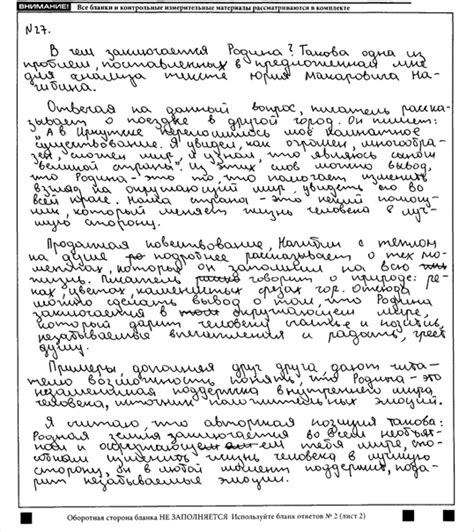 ВНИМАНИЕ! Все бланки и контрольные измерительные материалы рассматриваются в комплекте
№27.
В чем заключается Родина? Такова одна из
проблем, поставленных в предложенная мне
для анализа тексте Юрия Макаровича На-
гибина.
Отвечая на данный вопрос, писатель расска-
зывает о поездке в другой город. Он пишет:
"А в Иркутске переломилось моё комнатное
существование. Я увидел, как огромен, многообра-
зен, сложен мир, и узнал, что являюсь сыном
великой страны". Из этих слов можно вывод,
что Родина - это то что помогает изменить
взгляд на окружающий мир, увидеть его во
всей красе. Наша страна - это некий помощ-
ник, который меняет жизнь человека в луч-
шую сторону.
Продолжая повествование, Нагибин с теплом
на душе подробнее рассказывает о тех мо-
ментах, которые он запомнил на всю
жизнь. Писатель говорит о природе: ре-
ках, цветах, каменных срезах гор. Отсюда
можно сделать вывод о том, что Родина
заключается в окружающем мире,
который дарит человеку счастье и позитив,
незабываемые впечатления и радость, греет
душу.
Примеры, дополняя друг друга, дают чита-
телю возможность понять, что Родина - это
незаменимая поддержка внутреннего мира
человека, источник положительных эмоций.
Я считаю, что авторская позиция такова:
Родная земля заключается во всем необъят-
ном и окружающем тебя мире, спо-
собном изменить жизнь человека в лучшую
сторону, он в любой момент поддержит, пода-
рит незабываемые эмоции.
Оборотная сторона бланка НЕ ЗАПОЛНЯЕТСЯ Используйте бланк ответов № 2 (лист 2)